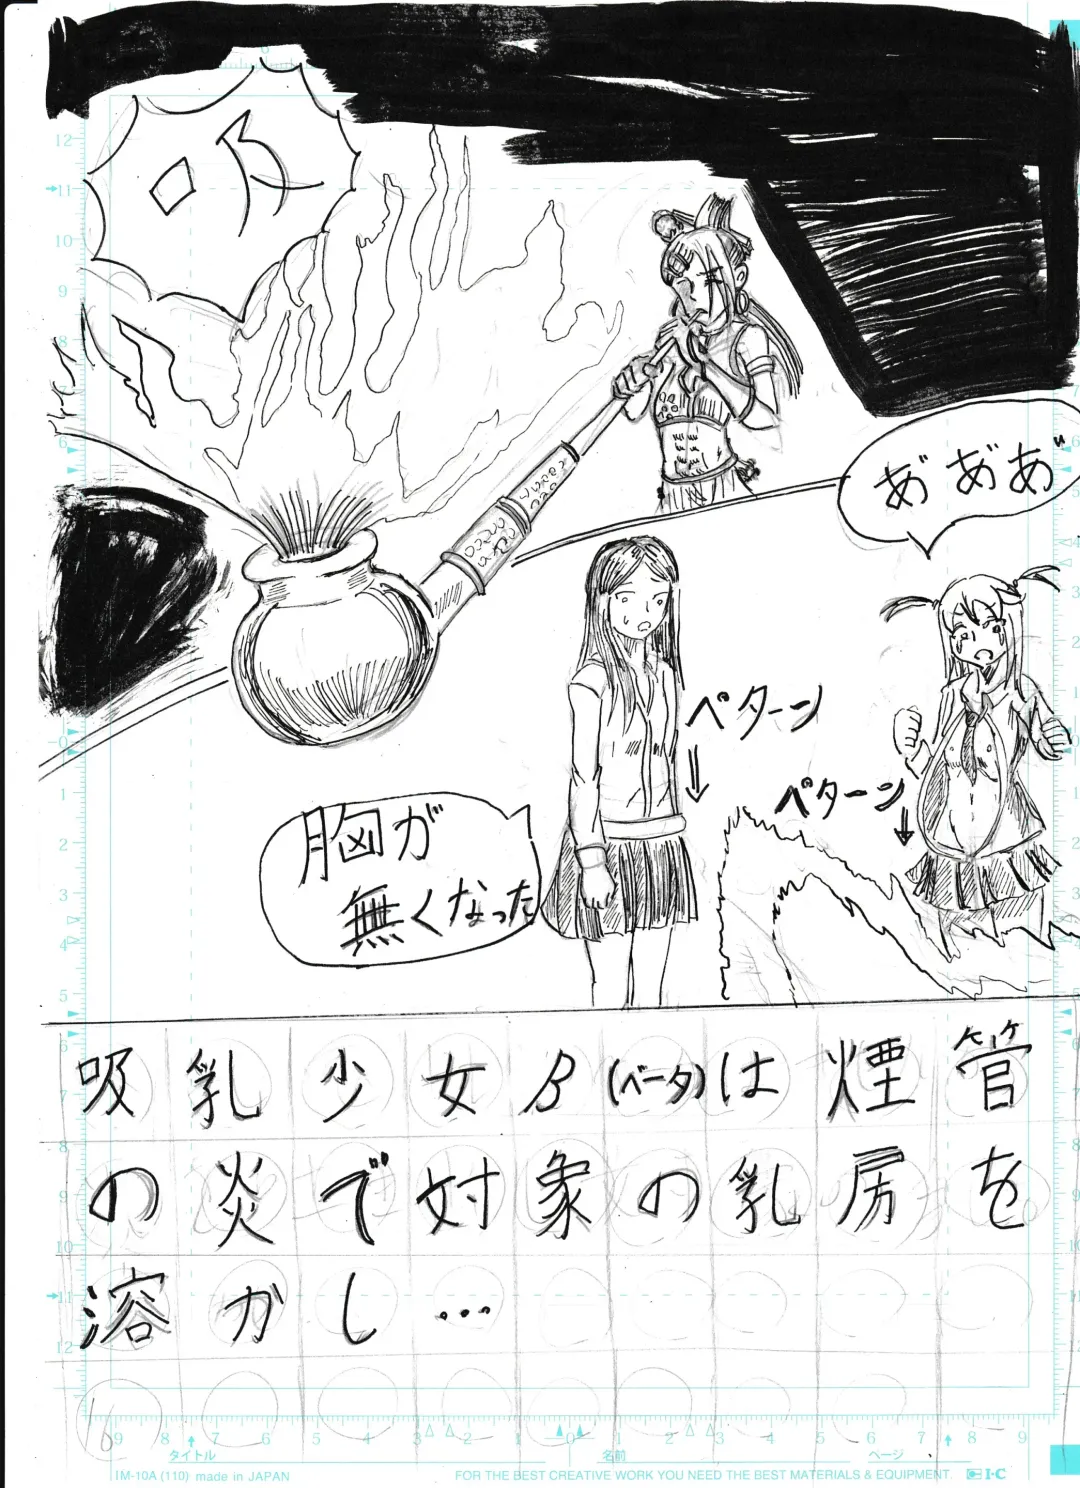 あ゛あ゛あ゛
ペターン
ペターン
胸が
無くなった
吸乳少女β(ベータ)は煙管
の炎で対象の乳房を
溶かし…
タイトル
名前
ページ
IM-10A (110) made in JAPAN
FOR THE BEST CREATIVE WORK YOU NEED THE BEST MATERIALS & EQUIPMENT.
I·C